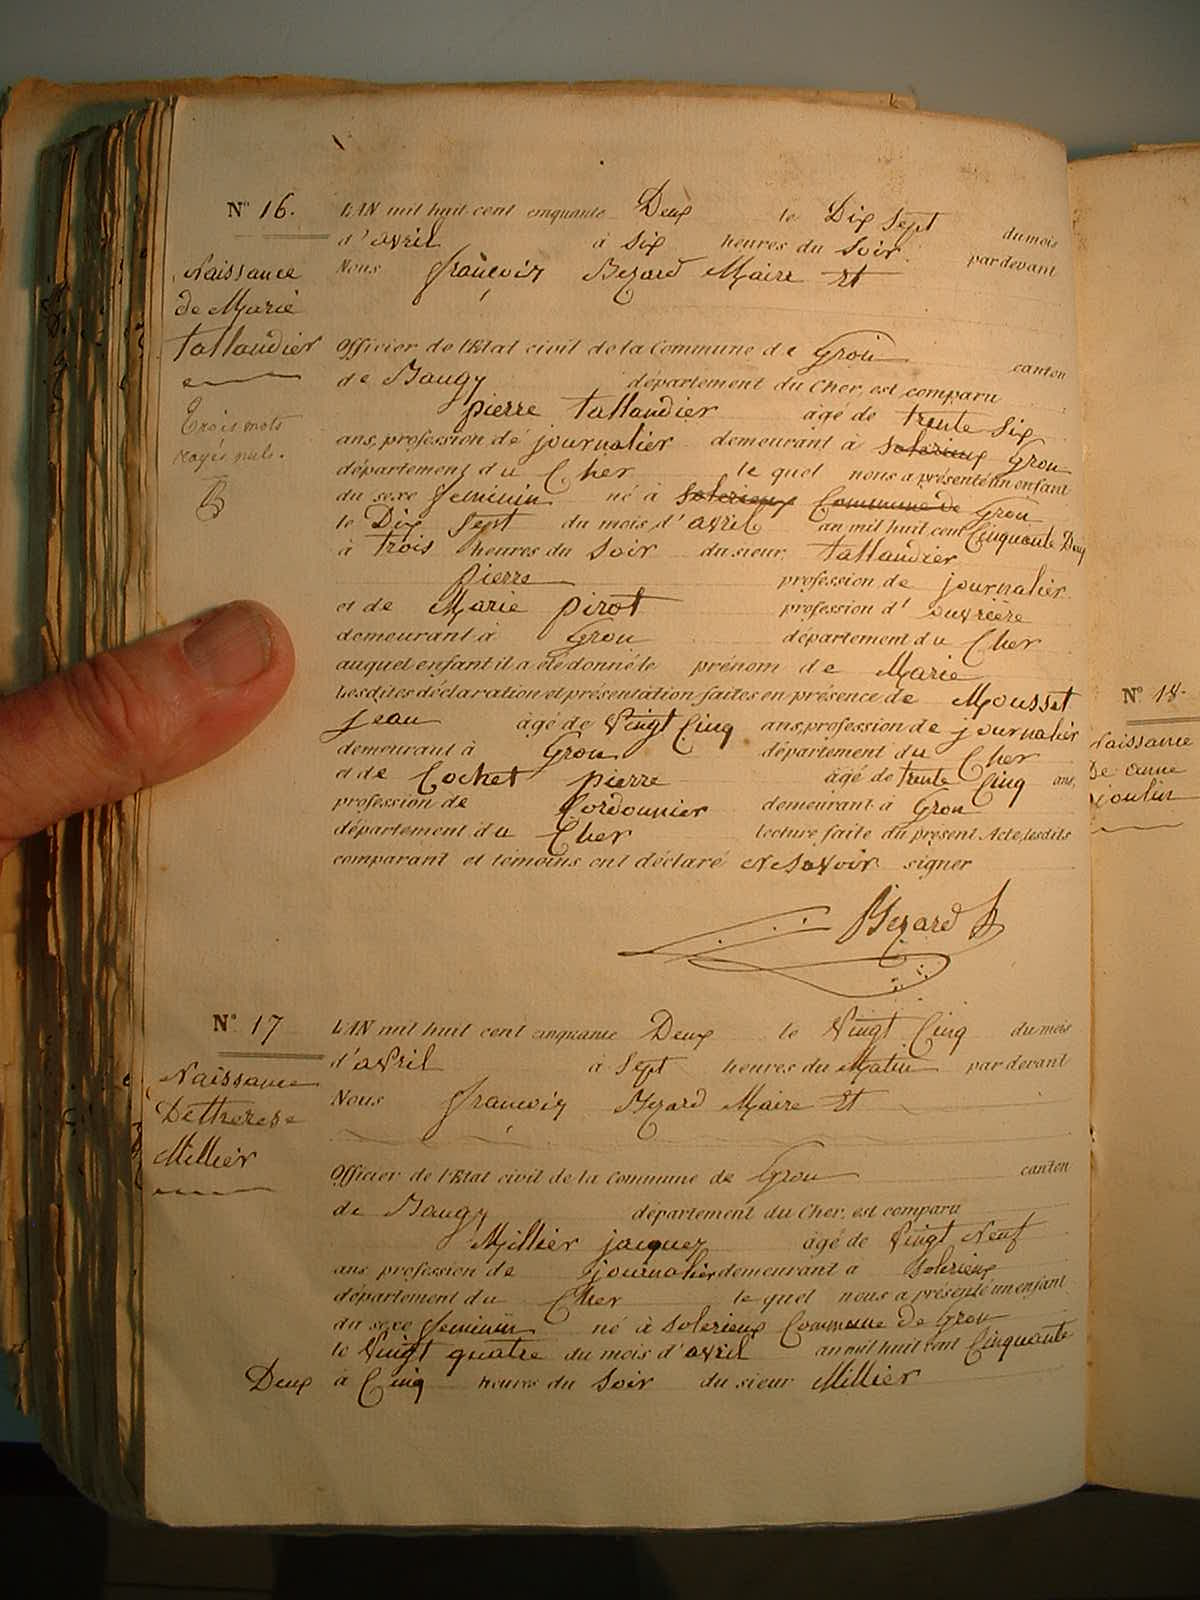 N° 16.
Naissance
de Marie
tallandier
Trois mots
rayés nuls.
B
L'AN mil huit cent cinquante Deux le Dix Sept du mois
d'avril à Six heures du Soir par devant
Nous françois Bezard Maire Et
Officier de l'Etat civil de la Commune de Gron canton
de Baugy département du Cher, est comparu
pierre tallandier âgé de trente Six
ans, profession de journalier demeurant à Solerieux Gron
département du Cher le quel nous a présenté un enfant
du sexe feminin né à Solerieux Commune de Gron
le Dix Sept du mois d'avril an mil huit cent Cinquante Deux
à trois heures du Soir du sieur tallandier
pierre profession de journalier
et de Marie pirot profession d' ouvrière
demeurant à Gron département du Cher
auquel enfant il a été donné le prénom de Marie
Lesdites déclaration et présentation faites en présence de Mousset
jean âgé de Vingt Cinq ans, profession de journalier
demeurant à Gron département du Cher
et de Cochet pierre âgé de trente Cinq ans,
profession de Cordonnier demeurant à Gron
département du Cher lecture faite du présent Acte, lesdits
comparant et témoins ont déclaré Ne Savoir signer
Bezard
N° 17
Naissance
De therese
Millier
L'AN mil huit cent cinquante Deux le Vingt Cinq du mois
d'avril à Sept heures du Matin par devant
Nous françois Bezard Maire Et
Officier de l'Etat civil de la Commune de Gron canton
de Baugy département du Cher, est comparu
Millier jacques âgé de Vingt Neuf
ans profession de journalier demeurant à Solerieux
département du Cher le quel nous a présenté un enfant
du sexe feminin né à Solerieux Commune de Gron
le Vingt quatre du mois d'avril an mil huit cent Cinquante
Deux à Cinq heures du Soir du sieur Millier
N° 18.
Naissance
De anne
joulin